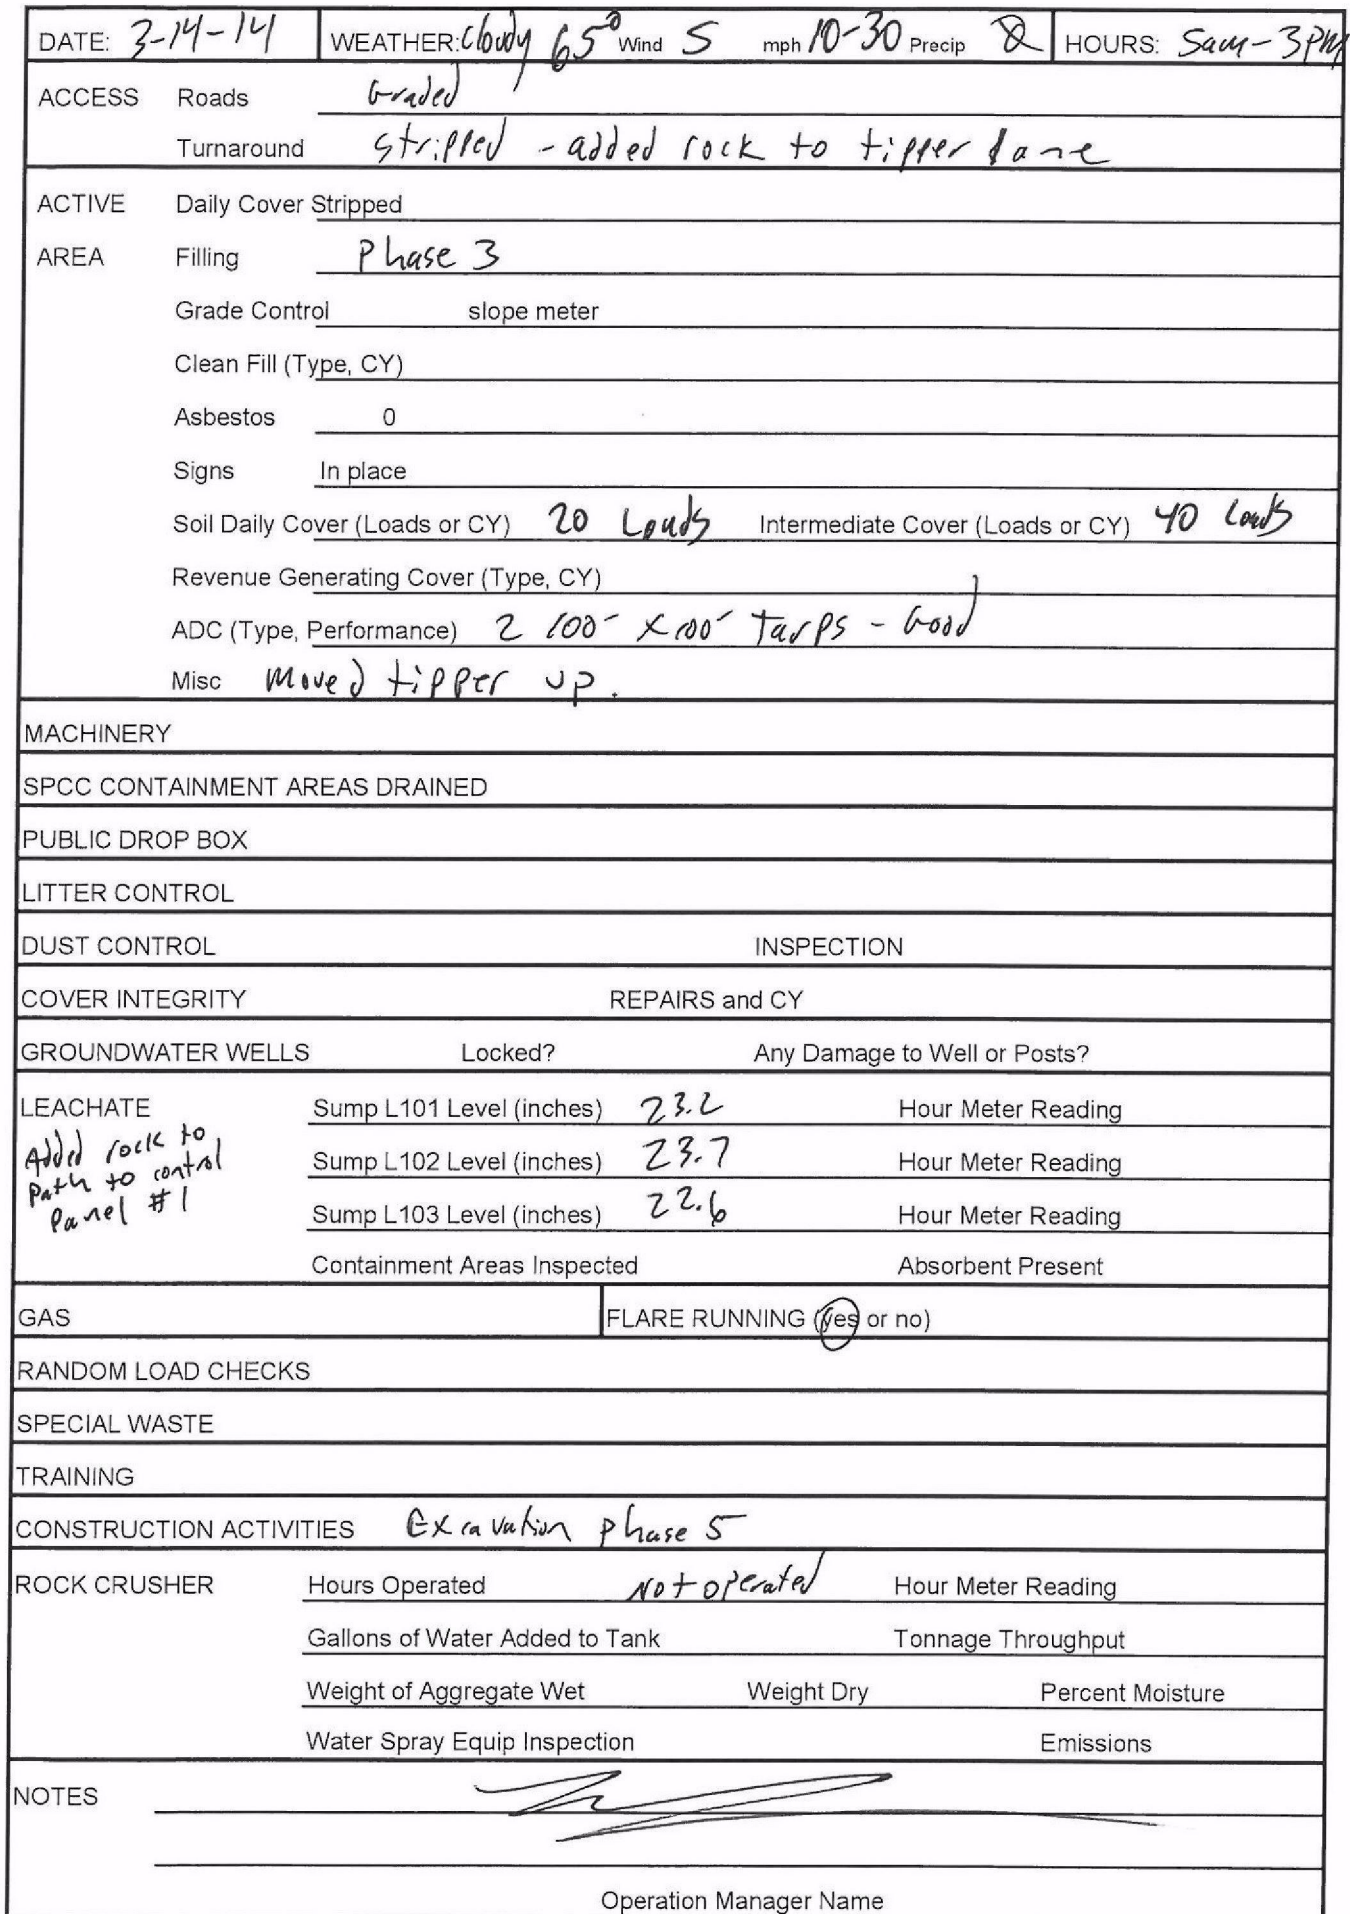 DATE: 3-14-14 WEATHER: Cloudy 65° Wind S mph 10-30 Precip Ø HOURS: 5am-3PM
ACCESS Roads Graded
Turnaround Stripped - added rock to tipper lane
ACTIVE Daily Cover Stripped
AREA Filling Phase 3
Grade Control slope meter
Clean Fill (Type, CY)
Asbestos 0
Signs In place
Soil Daily Cover (Loads or CY) 20 Loads Intermediate Cover (Loads or CY) 40 Loads
Revenue Generating Cover (Type, CY)
ADC (Type, Performance) 2 100' x 100' Tarps - Good
Misc Moved tipper up.
MACHINERY
SPCC CONTAINMENT AREAS DRAINED
PUBLIC DROP BOX
LITTER CONTROL
DUST CONTROL INSPECTION
COVER INTEGRITY REPAIRS and CY
GROUNDWATER WELLS Locked? Any Damage to Well or Posts?
LEACHATE Sump L101 Level (inches) 23.2 Hour Meter Reading
Added rock to
Path to control
Panel #1
Sump L102 Level (inches) 23.7 Hour Meter Reading
Sump L103 Level (inches) 22.6 Hour Meter Reading
Containment Areas Inspected Absorbent Present
GAS FLARE RUNNING (yes or no)
RANDOM LOAD CHECKS
SPECIAL WASTE
TRAINING
CONSTRUCTION ACTIVITIES Excavation Phase 5
ROCK CRUSHER Hours Operated Not operated Hour Meter Reading
Gallons of Water Added to Tank Tonnage Throughput
Weight of Aggregate Wet Weight Dry Percent Moisture
Water Spray Equip Inspection Emissions
NOTES
Operation Manager Name